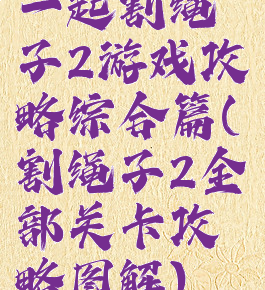 一起割绳
子2游戏攻
略综合篇(
割绳子2全
部关卡攻
略图解)